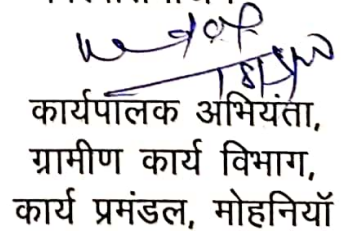 कार्यपालक अभियंता,
ग्रामीण कार्य विभाग,
कार्य प्रमंडल, मोहनियॉ